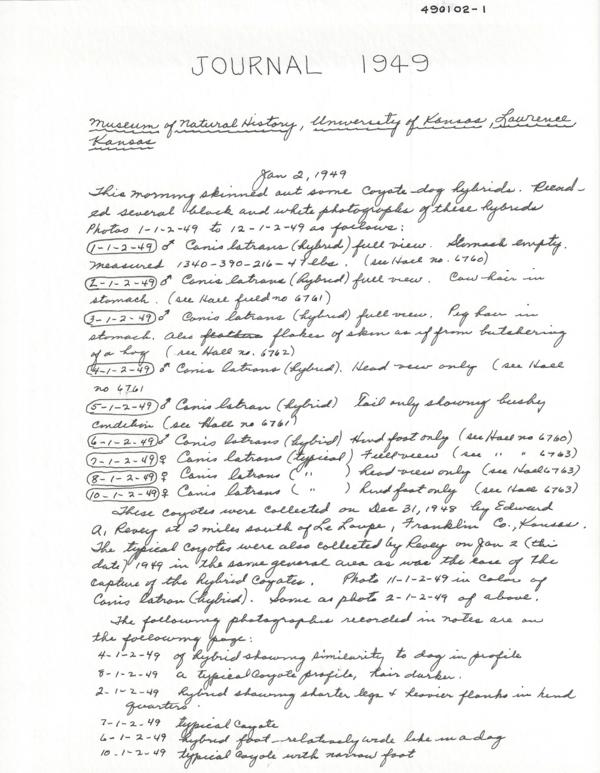 490102-1
JOURNAL 1949
Museum of Natural History, University of Kansas, Lawrence
Kansas
Jan 2, 1949
This morning skinned out some Coyote-dog hybrids. Record-
ed several black and white photographs of these hybrids
Photos 1-1-2-49 to 12-1-2-49 as follows:
1-1-2-49 ♂ Canis latrans (hybrid) full view. Stomach empty.
Measured 1340-390-216- 47 lbs. (see Hall no. 6760)
2-1-2-49 ♂ Canis latrans (hybrid) full view. Cow hair in
stomach. (see Hall field no 6761)
3-1-2-49 ♂ Canis latrans (hybrid) full view. Pig hair in
stomach. Also feathers flakes of skin as if from butchering
of a hog (see Hall no. 6762)
4-1-2-49 ♂ Canis latrans (hybrid). Head view only (see Hall
no 6761
5-1-2-49 ♂ Canis latran (hybrid) Tail only showing bushy
condition (see Hall no 6761)
6-1-2-49 ♂ Canis latrans (hybrid) Hind foot only (see Hall no 6760)
7-1-2-49 ♀ Canis latrans (typical) Full view (see " " 6763)
8-1-2-49 ♀ Canis latrans ( " ) Head view only (see Hall 6763)
10-1-2-49 ♀ Canis latrans ( " ) Hind foot only (see Hall 6763)
These coyotes were collected on Dec 31, 1948 by Edward
A. Revey at 2 miles south of Le Loupe, Franklin Co., Kansas.
The typical coyotes were also collected by Revey on Jan 2 (this
date) 1949 in the same general area as was the case of the
capture of the hybrid Coyotes. Photo 11-1-2-49 in color of
Canis latran (hybrid). Same as photo 2-1-2-49 of above.
The following photographs recorded in notes are on
the following page:
4-1-2-49 of hybrid showing similarity to dog in profile
8-1-2-49 a typical Coyote profile, hair darker.
2-1-2-49 hybrid showing shorter legs & heavier flanks in hind
quarters.
7-1-2-49 typical Coyote
6-1-2-49 hybrid foot - relatively wide like in a dog
10-1-2-49 typical Coyote with narrow foot